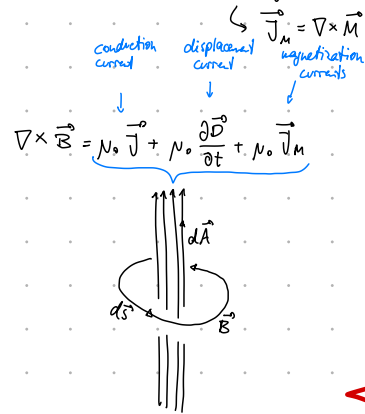 ↳ J⃗_M = ∇ × M⃗
conduction current
displacement current
magnetization currents
∇ × B⃗ = μ₀ J⃗ + μ₀ ∂D⃗/∂t + μ₀ J⃗_M
dA⃗
ds⃗
B⃗